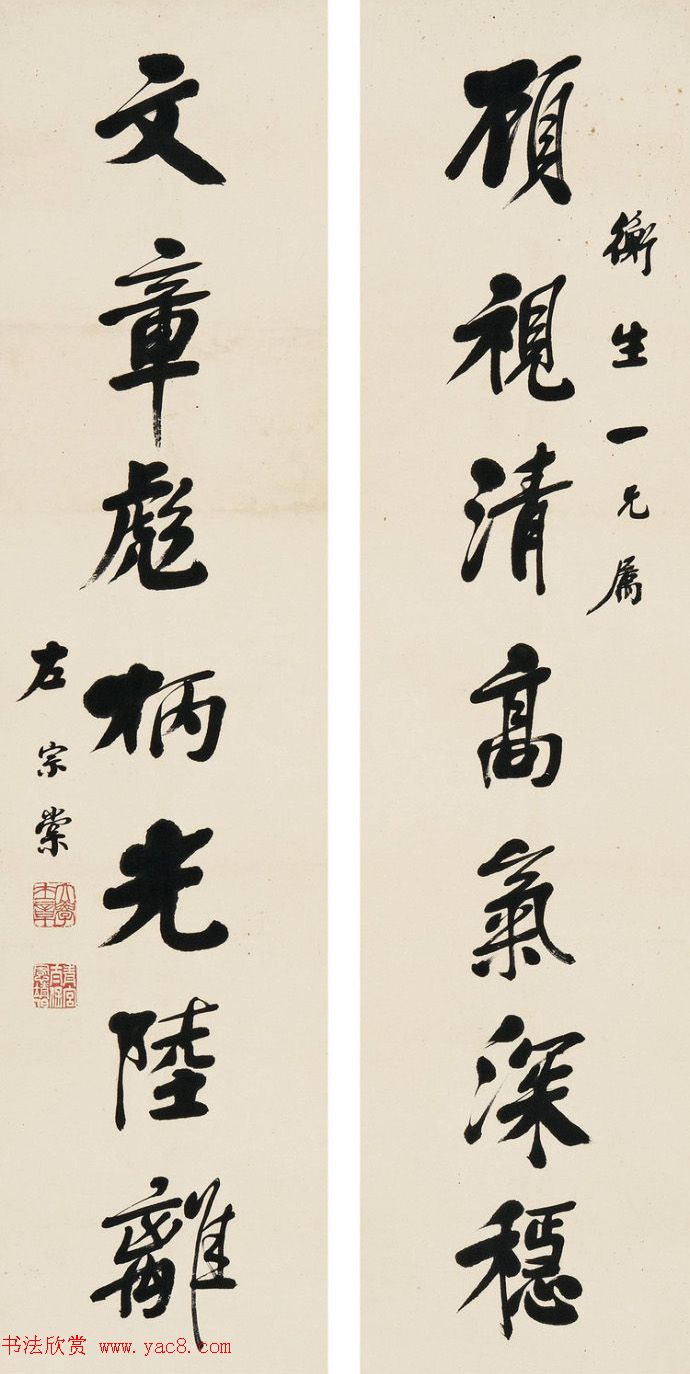 衡生一兄属
顧視清高氣深穩
文章彪柄光陸離
左宗棠
大學士章
书法欣赏 www.yac8.com